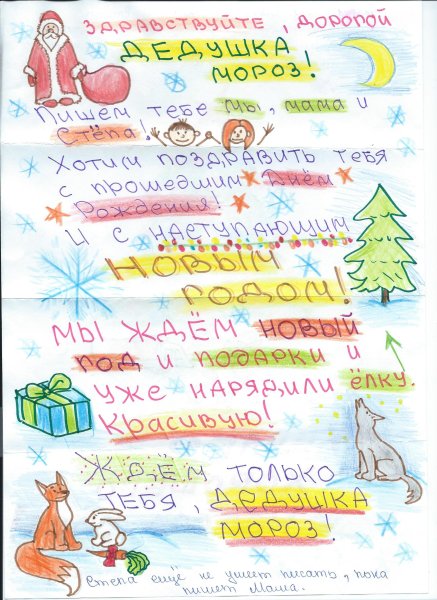 ЗДРАВСТВУЙТЕ, ДОРОГОЙ
ДЕДУШКА
МОРОЗ!
Пишем тебе мы, мама и
Стёпа!
Хотим поздравить тебя
с прошедшим Днём
Рождения!
И с наступающим
НОВЫМ
ГОДОМ!
МЫ ЖДЁМ НОВЫЙ
ГОД И ПОДАРКИ И
УЖЕ НАРЯДИЛИ ЁЛКУ.
Красивую!
ЖДЁМ ТОЛЬКО
ТЕБЯ, ДЕДУШКА
МОРОЗ!
Степа ещё не умеет писать, пока
пишет Мама.